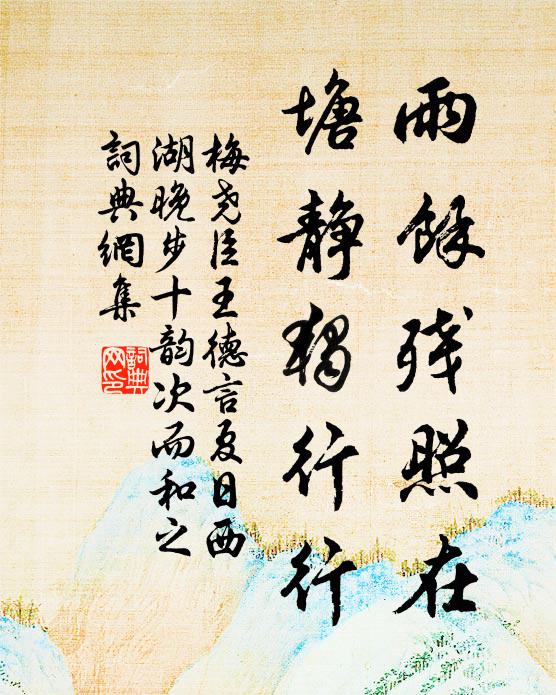 雨餘残照在
塘静獨行行
梅尧臣王德言夏日西
湖晚步十韵次而和之
詞典網集
詞典
网印